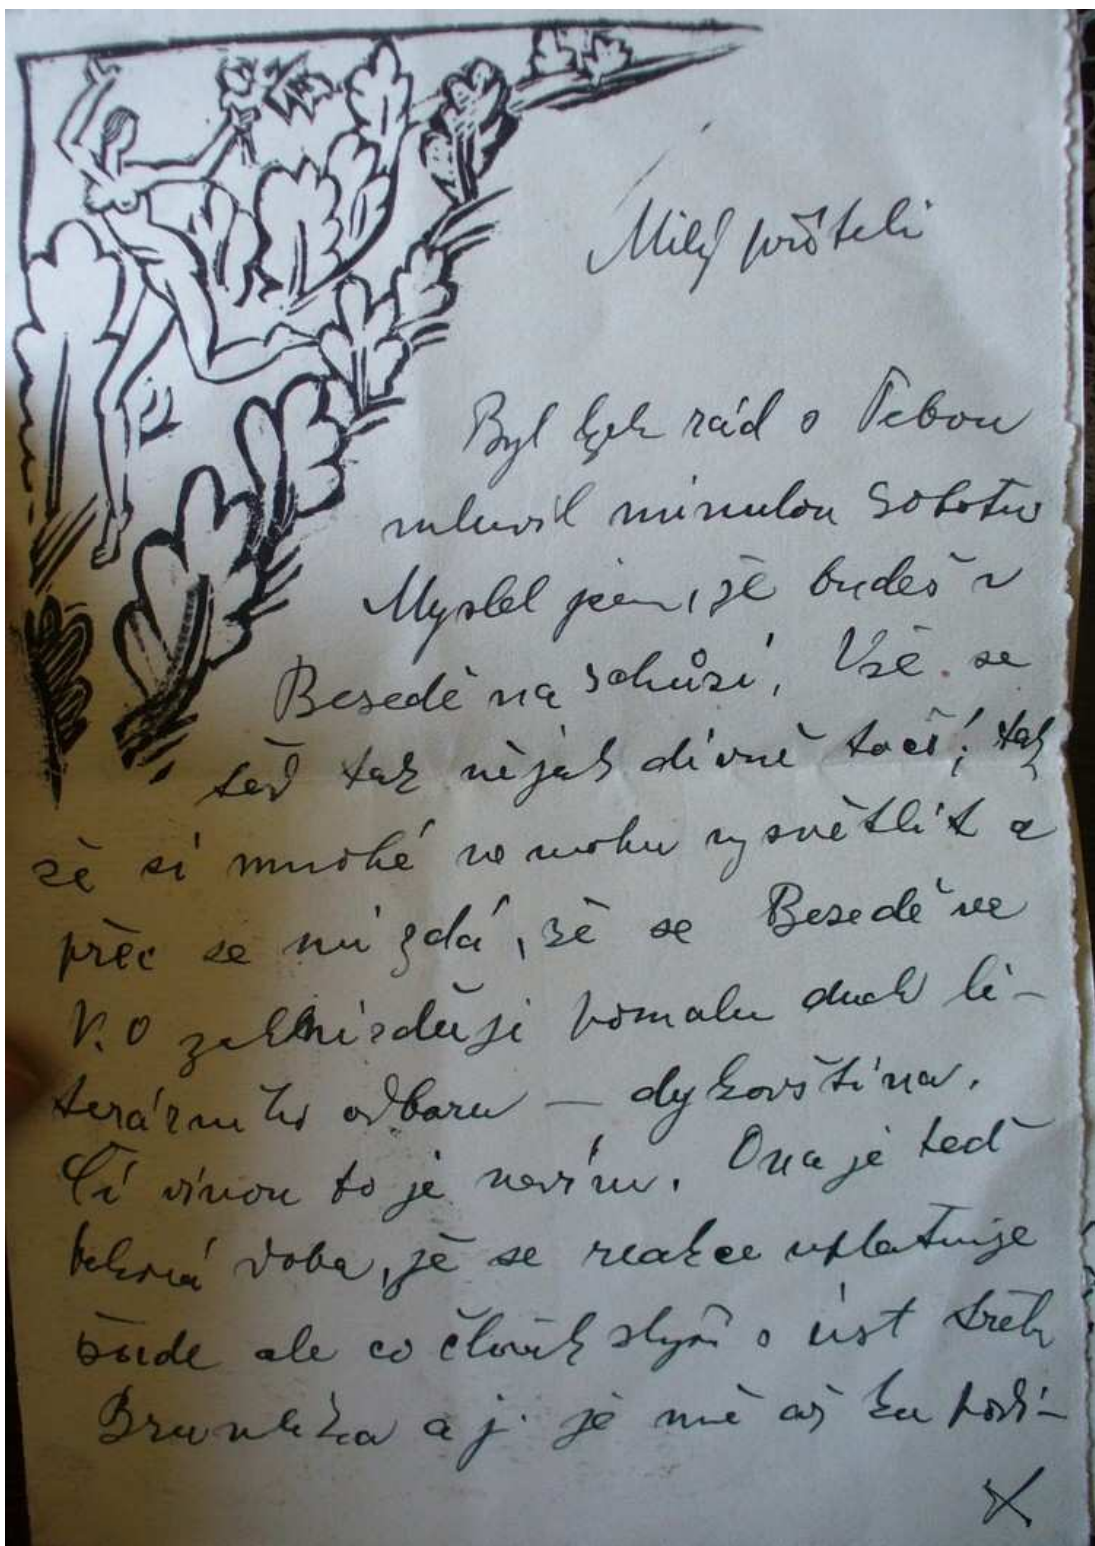 Milý příteli
Byl bych rád s Tebou
mluvil minulou sobotu
Myslel jsem, že budeš v
Besedě na schůzi, Vše se
teď tak nějak divně točí, tak
že si mnohé nemohu vysvětlit a
přec se mi zdá, že se Besedě ve
V.O zahnizďuje pomalu duch li-
terárního odboru — dykovština.
Čí vinou to je nevím. Ona je teď
taková doba, že se reakce uplatňuje
všude ale co člověk slyší s úst třeb
a j. je mě až ku podi-
X